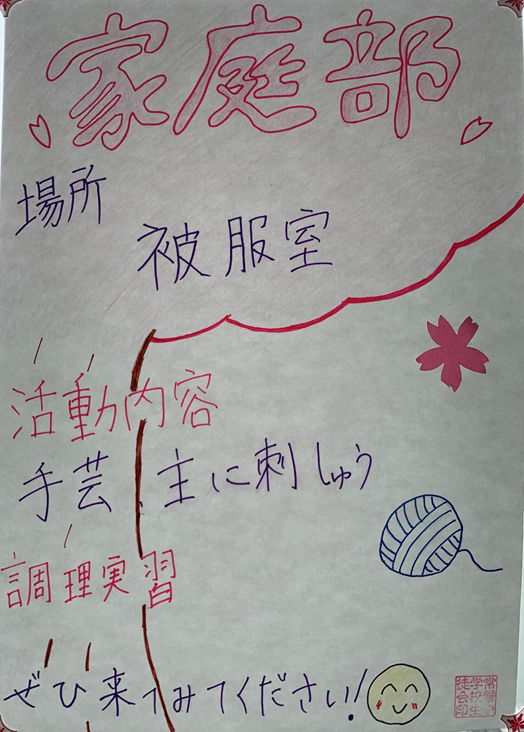 家庭部
場所
被服室
活動内容
手芸、主に刺しゅう
調理実習
ぜひ来てみてください!